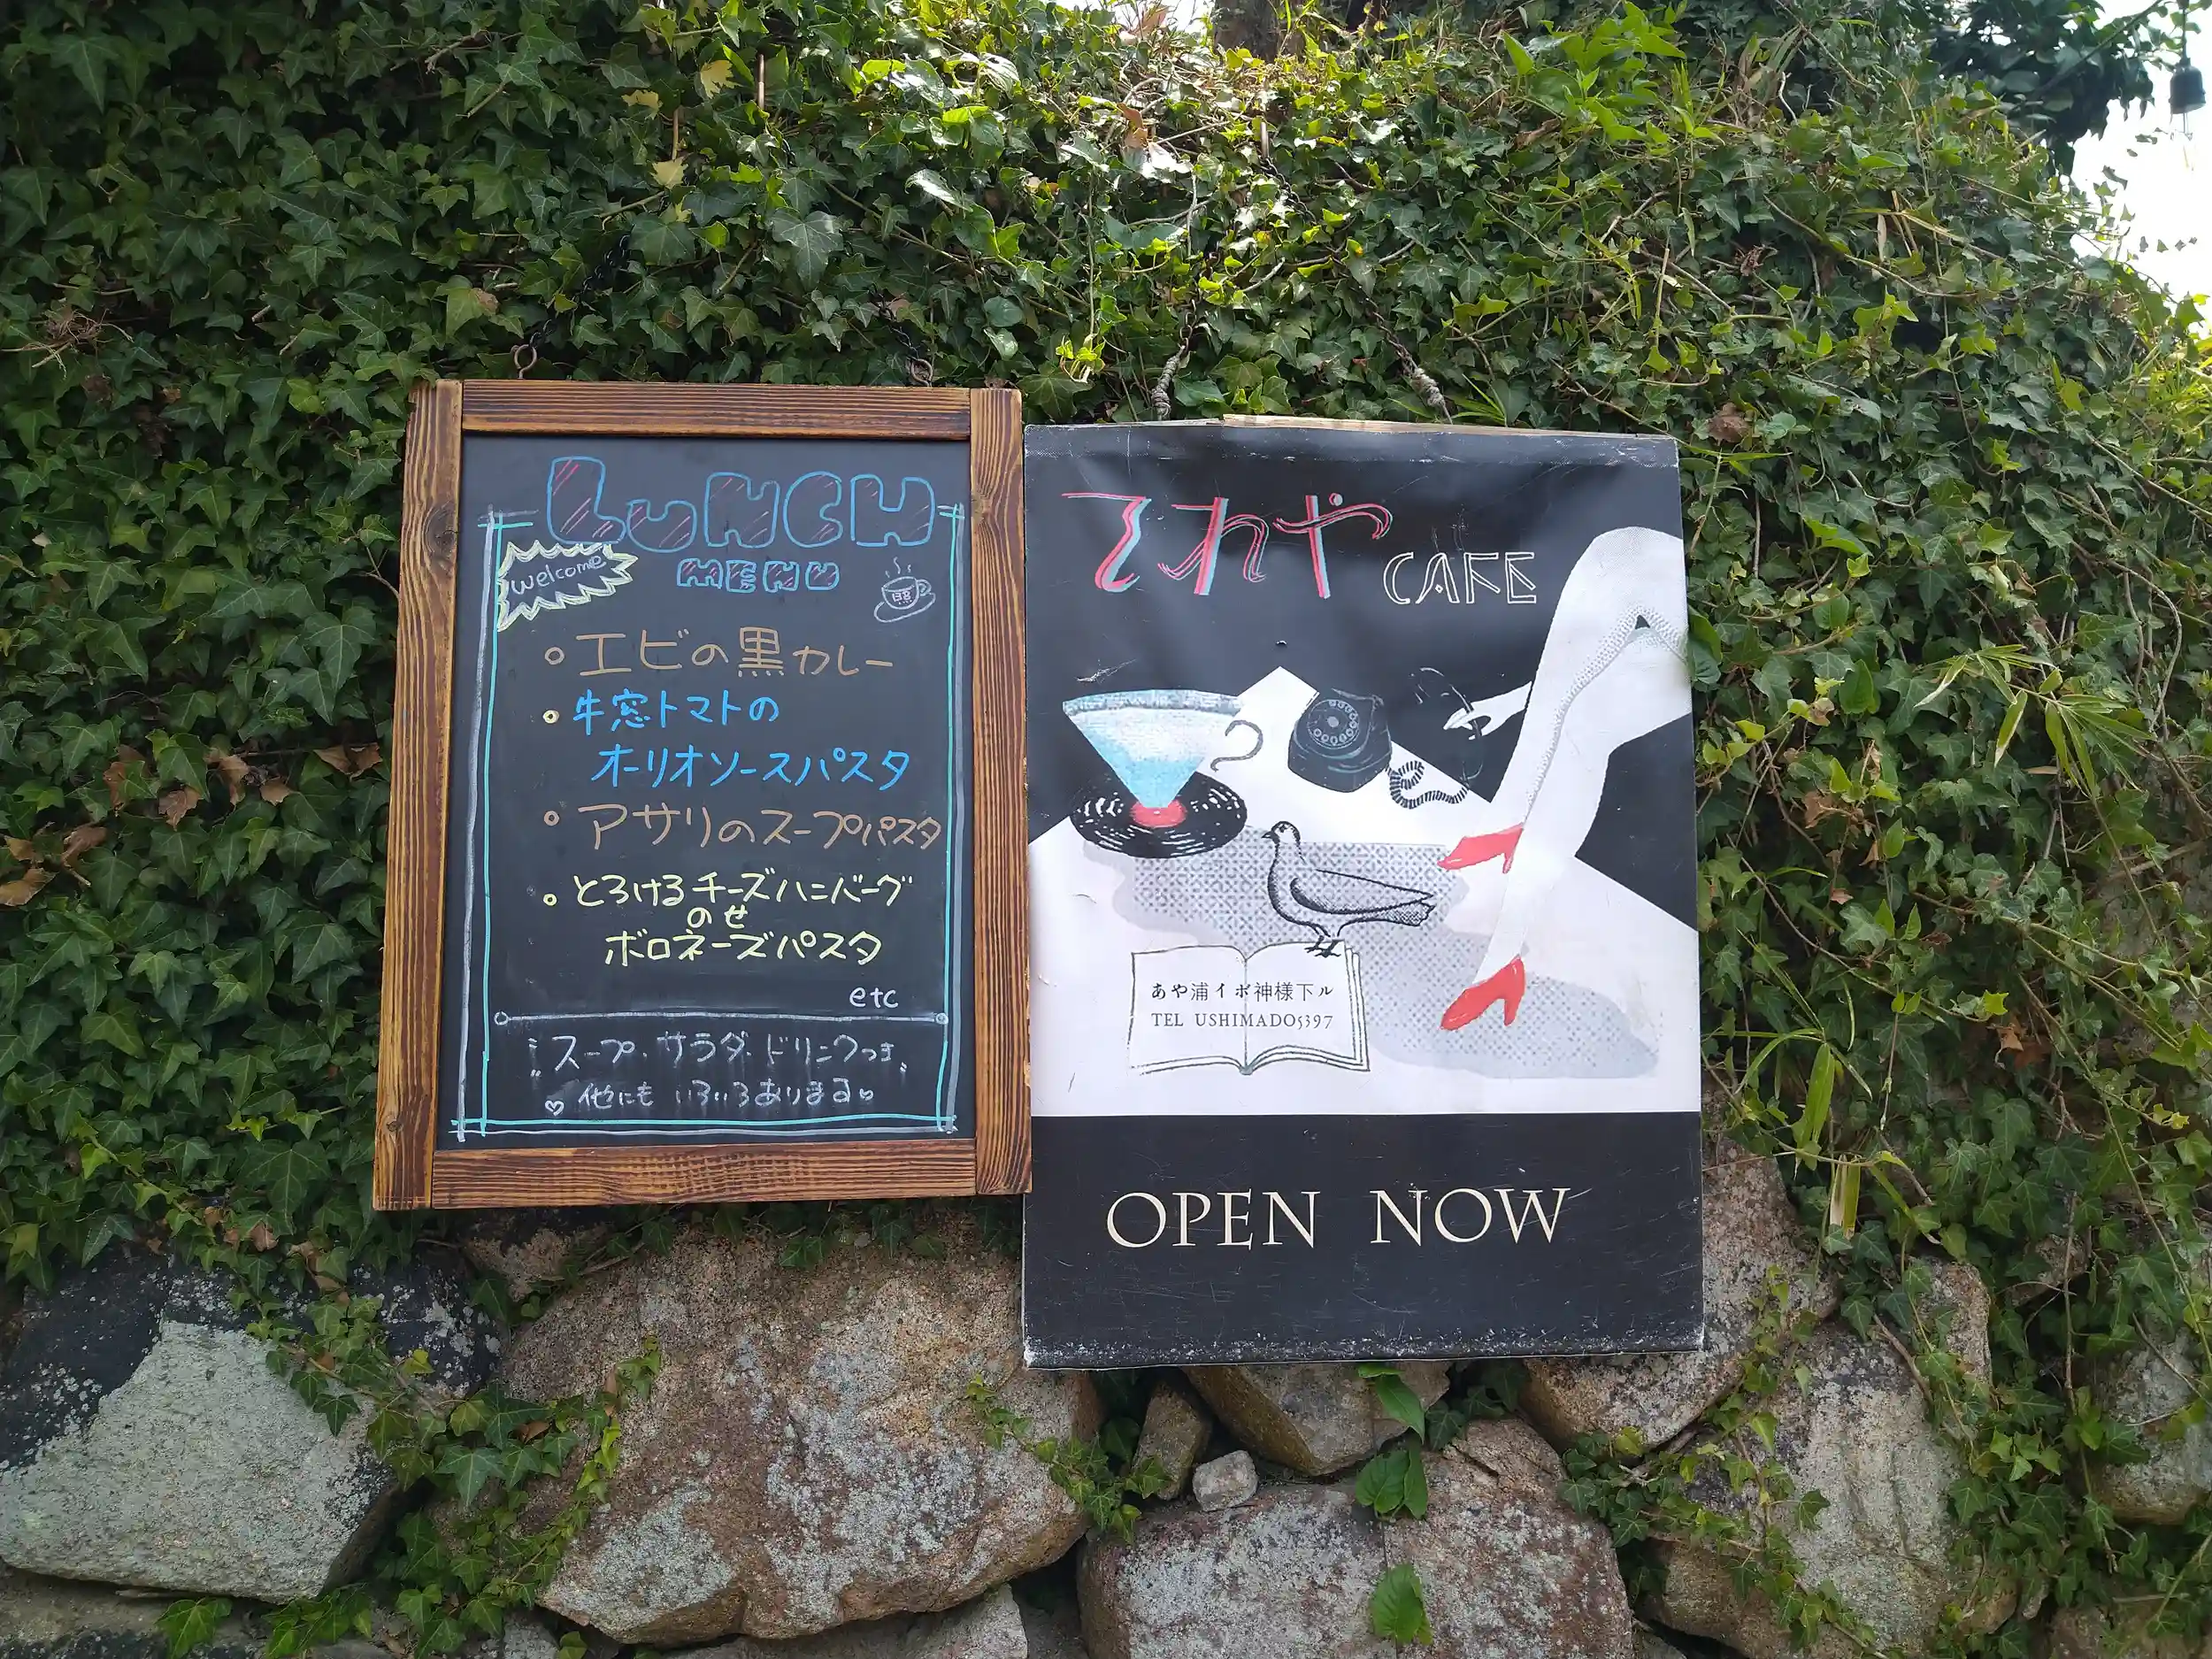 LUNCH
MENU
welcome
・エビの黒カレー
・牛窓トマトの
オーリオソースパスタ
・アサリのスープパスタ
・とろけるチーズハンバーグ
のせ
ボロネーズパスタ
etc
スープ・サラダ・ドリンクつき
♡他にもいろいろあります♡
てれや CAFE
あや浦イボ神様下ル
TEL USHIMADO5397
OPEN NOW